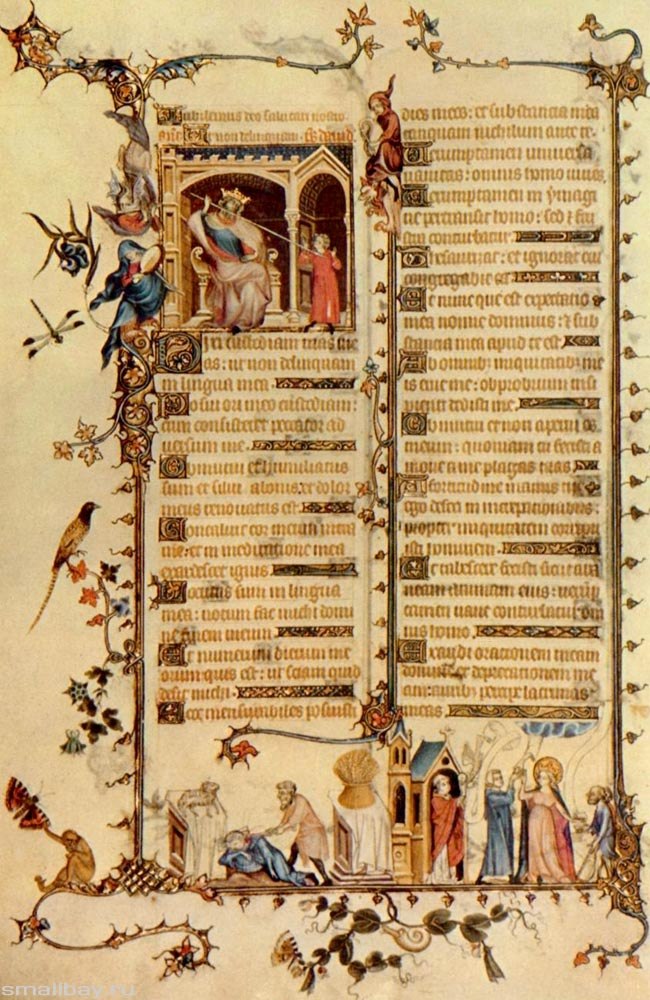 Iubilemus deo salutari nostro
Ut non delinquam. david
Dixi custodiam vias me
as: ut non delinquam
in lingua mea.
Posui ori meo custodiam:
cum consisteret peccator ad
versum me.
Obmutui et humiliatus
sum et silui a bonis: et dolor
meus renovatus est.
Concaluit cor meum intra
me: et in meditatione mea
exardescet ignis
Locutus sum in lingua
mea: notum fac michi domi
ne finem meum
Et numerum dierum me
orum quis est: ut sciam quid
desit michi.
Ecce mensurabiles posuisti
dies meos: et substantia mea
tanquam nichilum ante te.
Veruntamen universa
vanitas: omnis homo vivens
Veruntamen in ymagi
ne pertransit homo: sed et frus
tra conturbatur
Thesaurizat: et ignorat cui
congregabit ea
Et nunc que est expectatio
mea nonne dominus: et sub
stantia mea apud te est
Ab omnibus iniquitatibus me
is erue me: obprobrium insi
pienti dedisti me.
Obmutui et non aperui os
meum: quoniam tu fecisti a
move a me plagas tuas
A fortitudine manus tue
ego defeci in increpationibus:
propter iniquitatem corripu
isti hominem.
Et tabescere fecisti sicut ara
neam animam eius: verum
tamen vane conturbatur om
nis homo.
Exaudi orationem meam
domine et deprecationem me
am: auribus percipe lacrimas
meas.
smallbay.ru